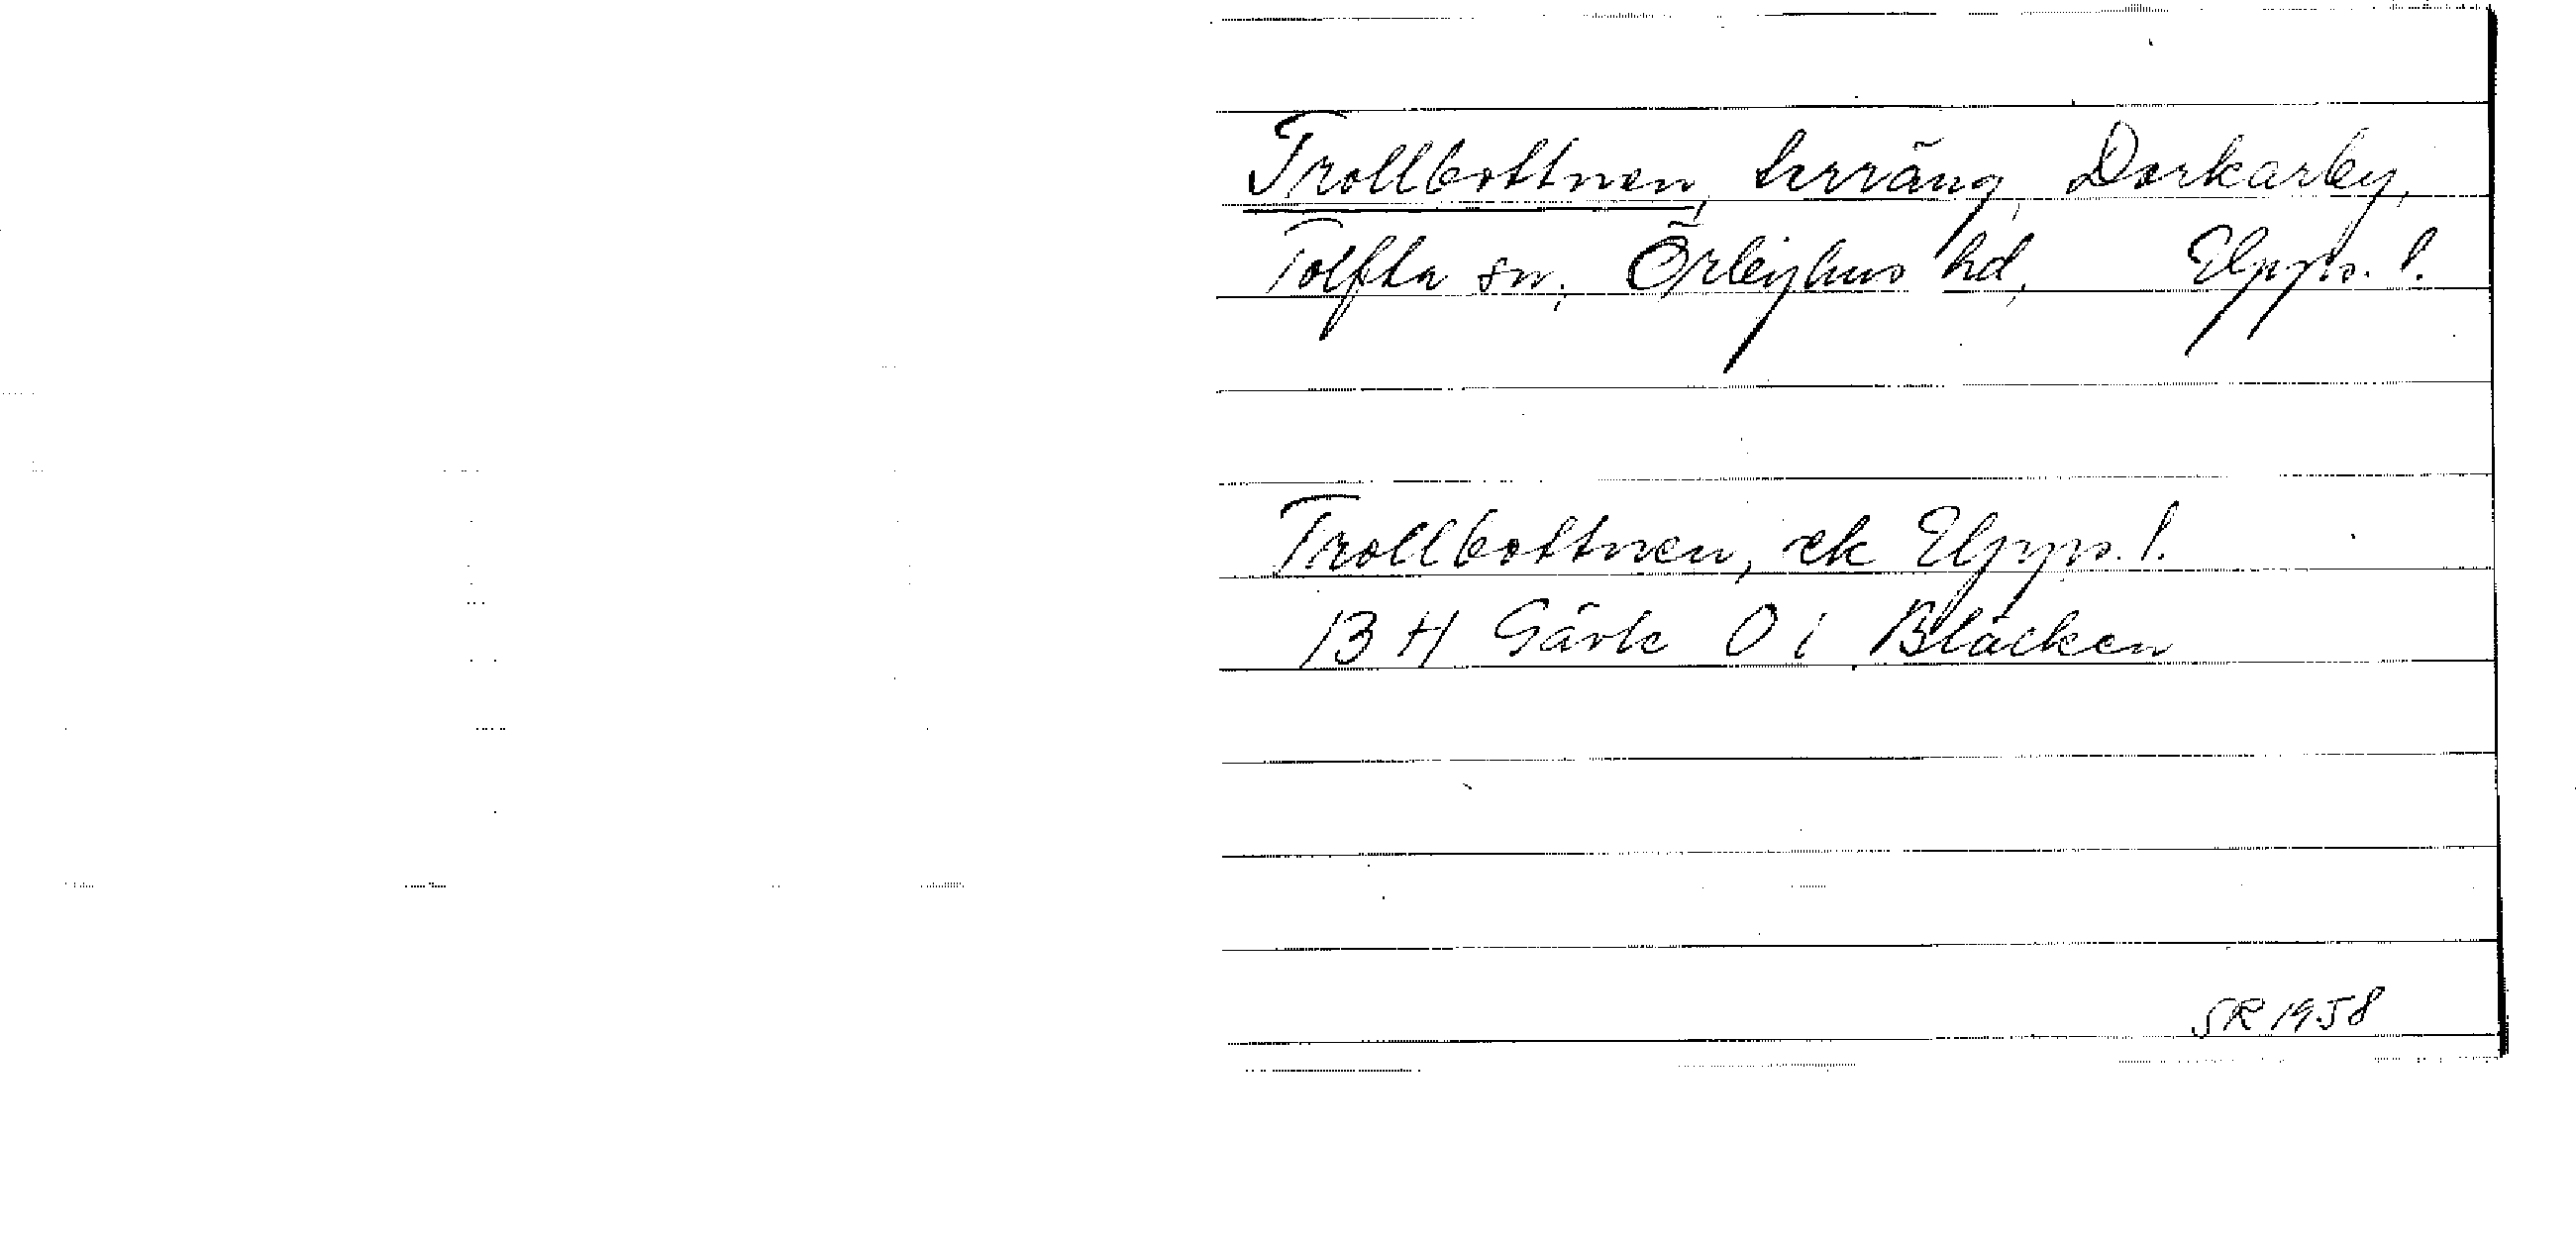 Trollbottnen, terräng, Dorkarby,
Tolfta sn, Örbyhus hd, Upps. l.
Trollbottnen, ek Upps. l.
13 H Gävle O i Bläcken
SR 1958